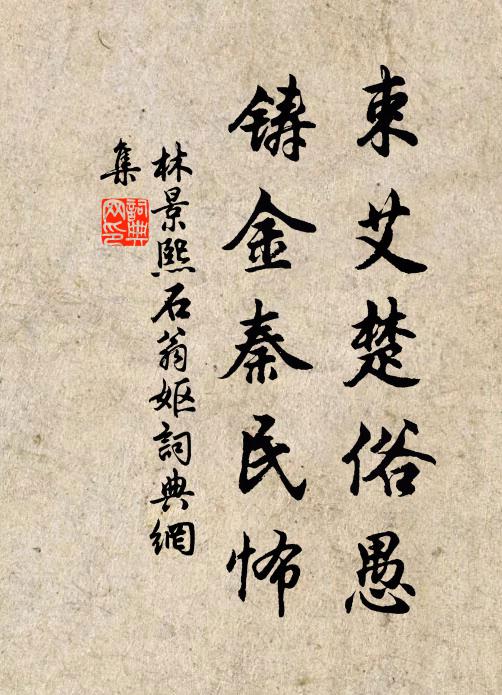 束艾楚俗愚
铸金秦民怖
林景熙石翁妪詞典網
集
詞典
网印